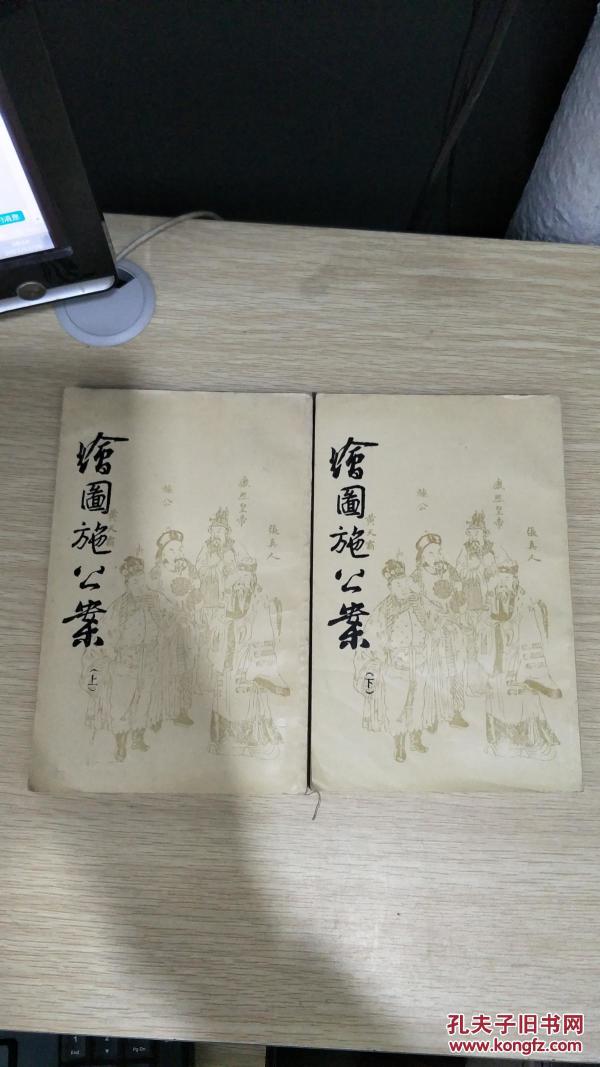 繪圖施公案
（上）
黃天霸
施公
康熙皇帝
張真人
繪圖施公案
（下）
黃天霸
施公
康熙皇帝
張真人
孔夫子旧书网
www.kongfz.com